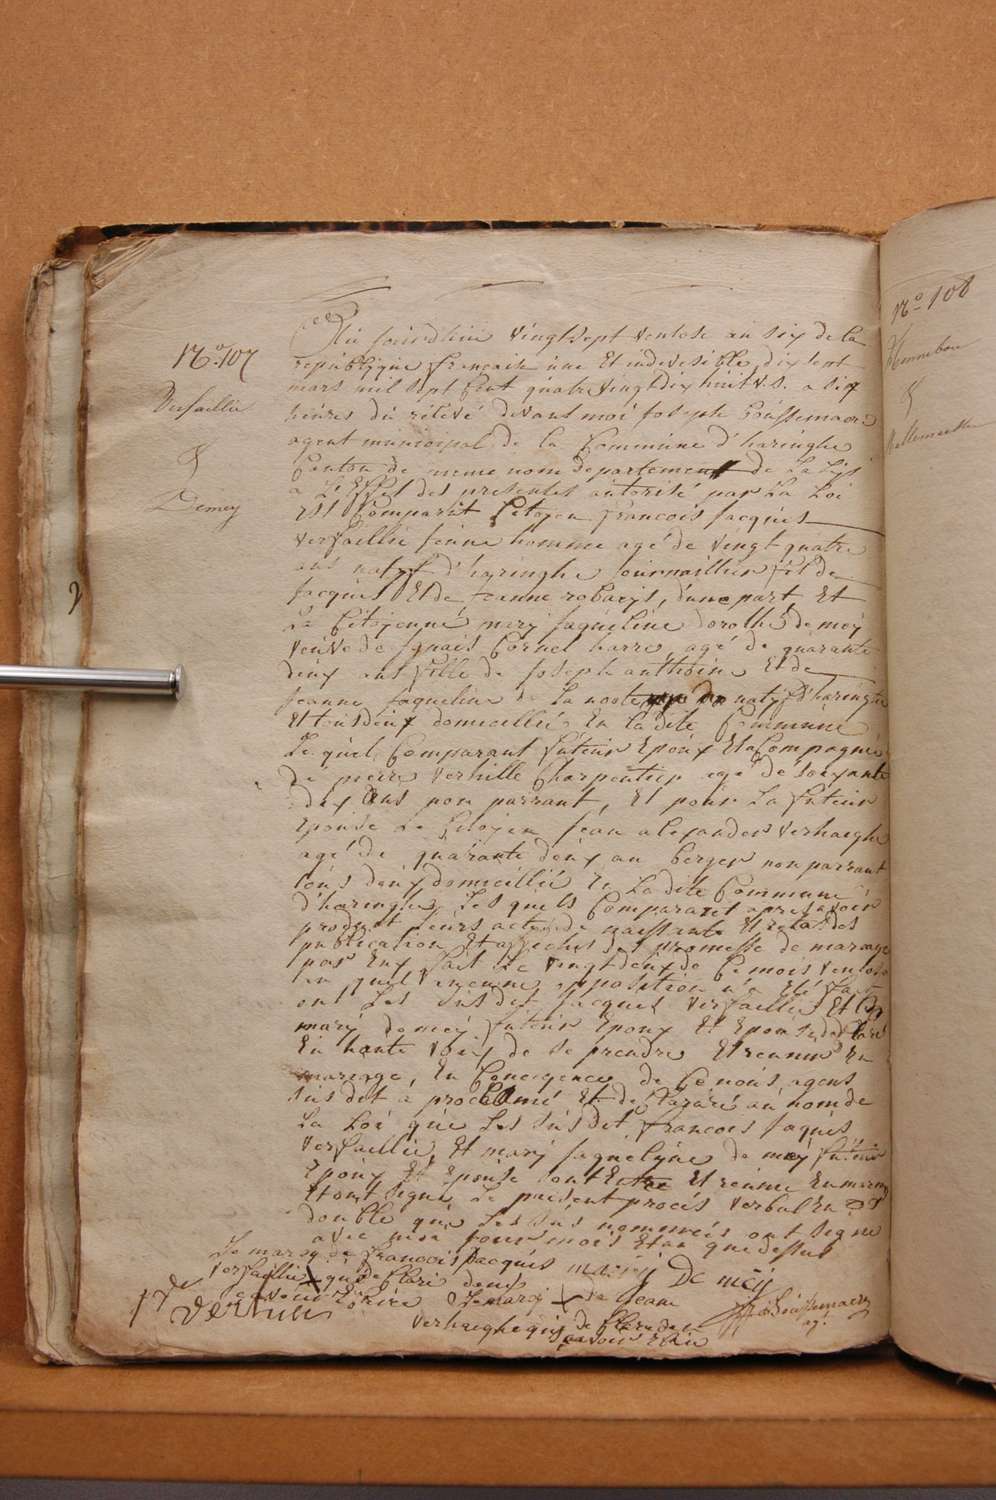 N.o 107
Versaillie
&
Demey
Au jourdhui vingt sept ventose an six de la
republique francaise une Et indivisible, dix sept
mars mil sept Cent quatre vingt dix huit v.s. a six
heures du relevé devant moi joseph Coussemacre
agent municipal de la Commune d'haringhe
Canton de meme nom departement de La Lys
a L'Effet des presentes autorisé par La Loi
Est Comparut Citoyen francois jacques
versaillie jeune homme agé de vingt quatre
ans natif d'haringhe journaillier fil de
jacques Et de jeanne robaeys, d'une part, Et
La Citoyenne mary jaqueline dorothé de mey
veuve de ignais Cornel harre agé de quarante
deux ans fille de joseph anthoine Et de
jeanne jaqueline de La noote natif d'haringhe
Et tous deux domicillié En la dite Commune
Le quel Comparant futeur Epoux Et aCompagné
de pierre verhille Charpentier agé de soixante
dix ans non parrant, Et pour La futeur
Epouse Le Citoyen jean alexander verhaeghe
agé de quarante deux an berger non parrant
tous deux domicillié En La dite Commune
d'haringhe Les quels Comparant apres avoir
produit leurs acte de naissante Et
publication Et affiches de promesse de mariage
par Eux fait Le vingt deux de Ce mois ventose
quel aucune opposition n'a Eté fait
ont Les susdit jacques versaillie Et
mary demey futeur Epoux Et Epouse declaré
En haute voix de se prendre Et reunir En
mariage, En Consequence de Ce nous agent
susdit a proclamé Et declararé au nom de
La Loi que Les susdit francois jaques
versaillie, Et mary jaquelyne de mey futeur
Epoux Et Epouse sont Entre Et reunie En
Et ont signé Le present procés verbal En
double que Les sus nommés ont signe
avec moi jour mois Et an que dessus
Le marcq de francois jacques mary De mey
versaillie X qui declari
savoir Ecrire Le marcq X de jean
Verhille
verhaeghe qui declare de
savoir Ecrire
J: Coussemacre
ag.t
N.o 108
Hennebou
&